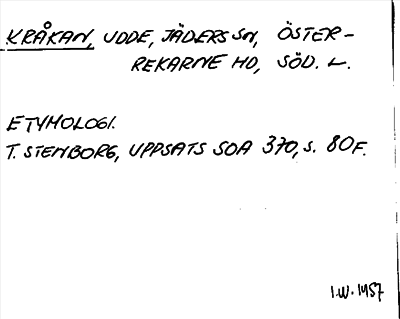 KRÅKAN, UDDE, JÄDERS SN, ÖSTER-
REKARNE HD, SÖD. L.
ETYMOLOGI.
T. STENBORG, UPPSATS SOA 370, S. 80F.
I.W. 1957